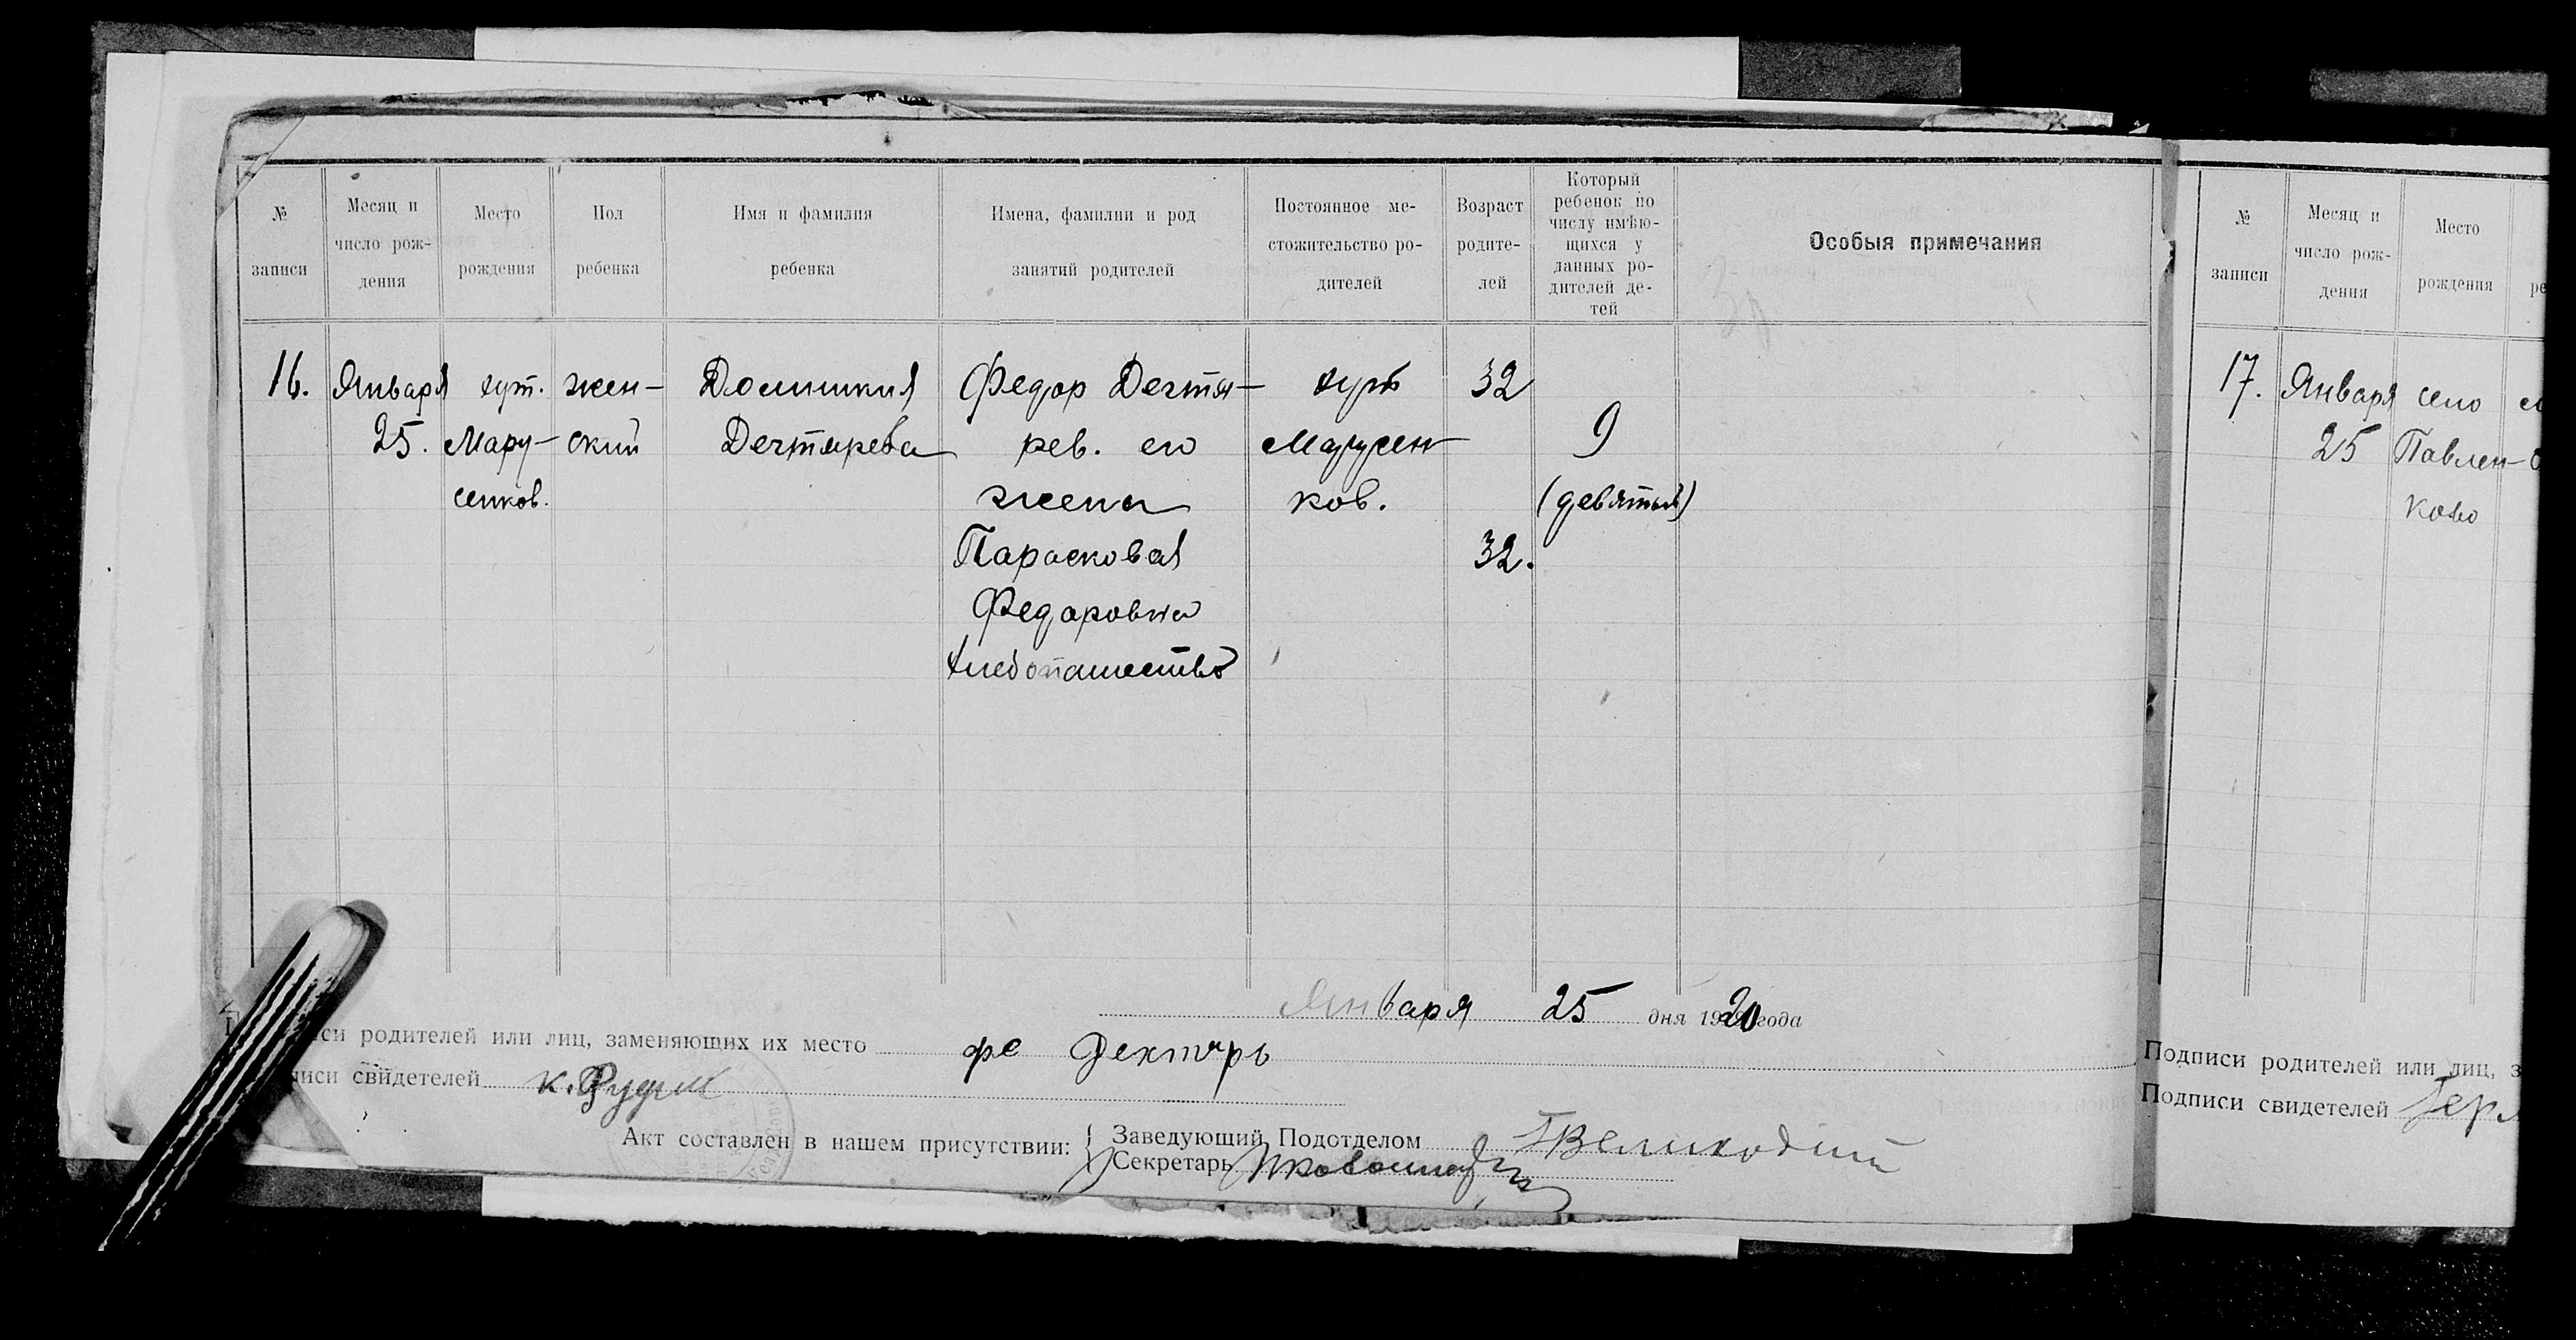 № записи
Месяц и число рождения
Место рождения
Пол ребенка
Имя и фамилия ребенка
Имена, фамилии и род занятий родителей
Постоянное местожительство родителей
Возраст родителей
Который ребенок по числу имѣющихся у данных родителей детей
Особыя примечания
16.
Января
25.
хут.
Мару-
сенков.
жен-
ский
Домникия
Дегтярева
Федор Дегтя-
рев. его
жена
Парасковея
Федаровна
хлебопашество
хут
Марусен
ков.
32
32.
9
(девятый)
Января 25 дня 1920 года
родителей или лиц, заменяющих их место фе Дехтярь
свидетелей К. Рудий
Акт составлен в нашем присутствии:
Заведующий Подотделом Великодний
Секретарь
№ записи
Месяц и число рождения
Место рождения
17.
Января
25
село
Павлен-
ково
Подписи родителей или лиц,
Подписи свидетелей